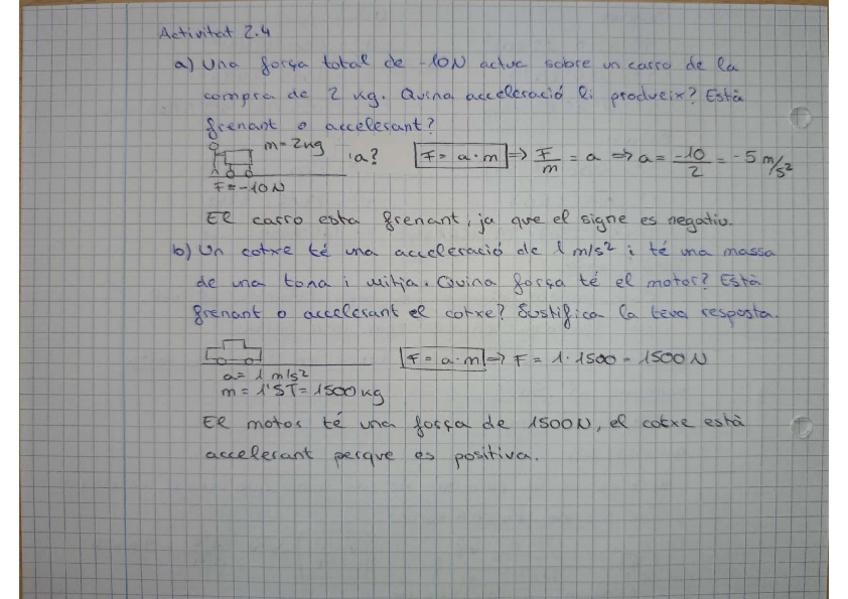 Activitat 2.4
a) Una força total de -10N actua sobre un carro de la
compra de 2 kg. Quina acceleració li produeix? Està
frenant o accelerant?
m=2kg
a?
F = a·m ⇒ F/m = a ⇒ a = -10/2 = -5 m/s²
F=-10N
El carro esta frenant, ja que el signe es negatiu.
b) Un cotxe té una acceleració de 1 m/s² i té una massa
de una tona i mitja. Quina força té el motor? Està
frenant o accelerant el cotxe? Justifica la teva resposta.
F = a·m ⇒ F = 1·1500 = 1500 N
a= 1 m/s²
m = 1'5T= 1500 kg
El motor té una força de 1500N, el cotxe està
accelerant perque es positiva.